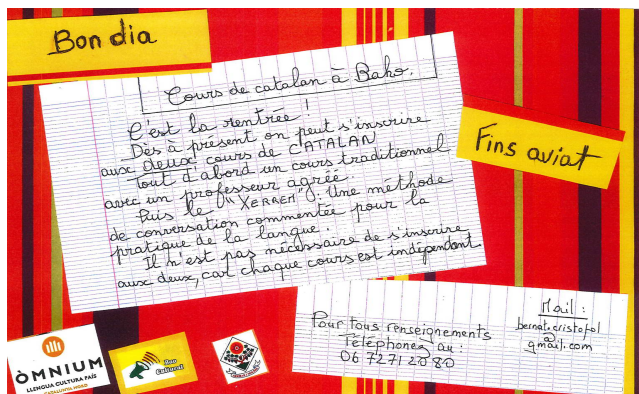 Bon dia
Cours de catalan à Baho.
C'est la rentrée !
Dès à présent on peut s'inscrire
aux deux cours de CATALAN
Tout d'abord un cours traditionnel
avec un professeur agréé.
Puis le "XERREM": Une méthode
de conversation commentée pour la
pratique de la langue.
Il n'est pas nécessaire de s'inscrire
aux deux, car chaque cours est indépendant
Fins aviat
Pour tous renseignements
Téléphonez au :
06 72 71 20 80
Mail :
bernat.cristofol
@
gmail.com
ÒMNIUM
LLENGUA CULTURA PAÍS
CATALUNYA NORD
Cultural